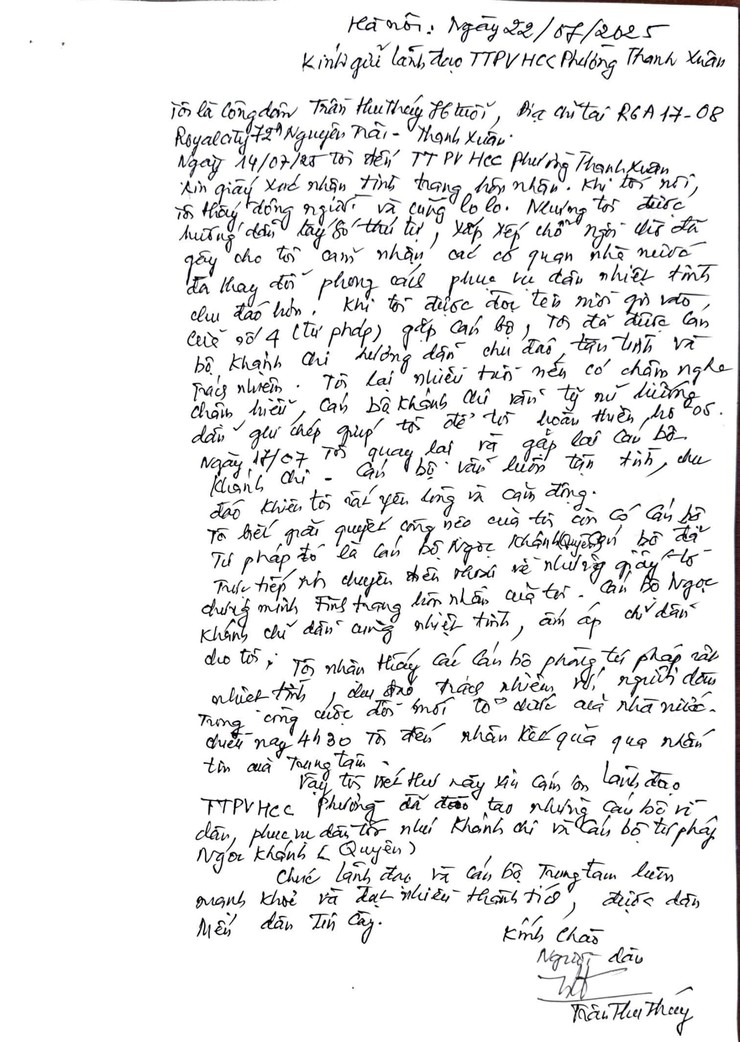 Hà nội: Ngày 22/07/2025
Kính gửi lãnh đạo TTPVHCC Phường Thanh Xuân
Tôi là công dân Trần Thu Thúy 76 tuổi, Địa chỉ tại R6A 17-08
Royalcity 72A Nguyễn Trãi - Thanh Xuân.
Ngày 14/07/25 tôi đến TTPVHCC phường Thanh Xuân
xin giấy xác nhận tình trạng hôn nhân. Khi tới nơi,
Tôi thấy đông người và cũng lo lo. Nhưng tôi được
hướng dẫn lấy số thứ tự, xắp xếp chỗ ngồi đã
gây cho tôi cảm nhận các cơ quan nhà nước
đã thay đổi phong cách phục vụ dân nhiệt tình
chu đáo hơn. Khi tôi được đọc tên mời vào,
cửa số 4 (tư pháp) gặp cán bộ, Tôi đã được cán
bộ Khánh Chi hướng dẫn chu đáo, tận tình và
trách nhiệm. Tôi lại nhiều tuổi nên có chậm nghe
chậm hiểu, cán bộ Khánh Chi vẫn hướng
dẫn ghi chép giúp tôi để tôi hoàn thiện hồ sơ.
Ngày 17/07 Tôi quay lại và gặp lại cán bộ
Khánh Chi - cán bộ vẫn luôn tận tình, chu
đáo khiến tôi rất yên lòng và cảm động.
Tô biết giải quyết công việc của tôi còn có cán bộ
Tư pháp đó là cán bộ Ngọc Khánh (Quyên) cán bộ đã
Trực tiếp nói chuyện với tôi về những giấy tờ
chứng minh tình trạng hôn nhân của tôi. Cán bộ Ngọc
Khánh chỉ dẫn cũng nhiệt tình, ấm áp chỉ dẫn
cho tôi; Tôi nhận thấy các cán bộ phòng tư pháp rất
nhiệt tình, chu đáo trách nhiệm với người dân
Trong công cuộc đổi mới tổ chức của nhà nước.
chiều nay 4h30 Tôi đến nhận kết quả qua nhắn
tin của Trung tâm.
Vậy tôi viết thư này xin cám ơn lãnh đạo
TTPVHCC phường đã đào tạo những cán bộ vì
dân, phục vụ dân tốt như Khánh Chi và cán bộ tư pháp
Ngọc Khánh (Quyên)
Chúc lãnh đạo và cán bộ Trung tâm luôn
mạnh khoẻ và đạt nhiều thành tích, được dân
Mến dân Tin Cậy.
Kính Chào
Người dân
Trần Thu Thúy